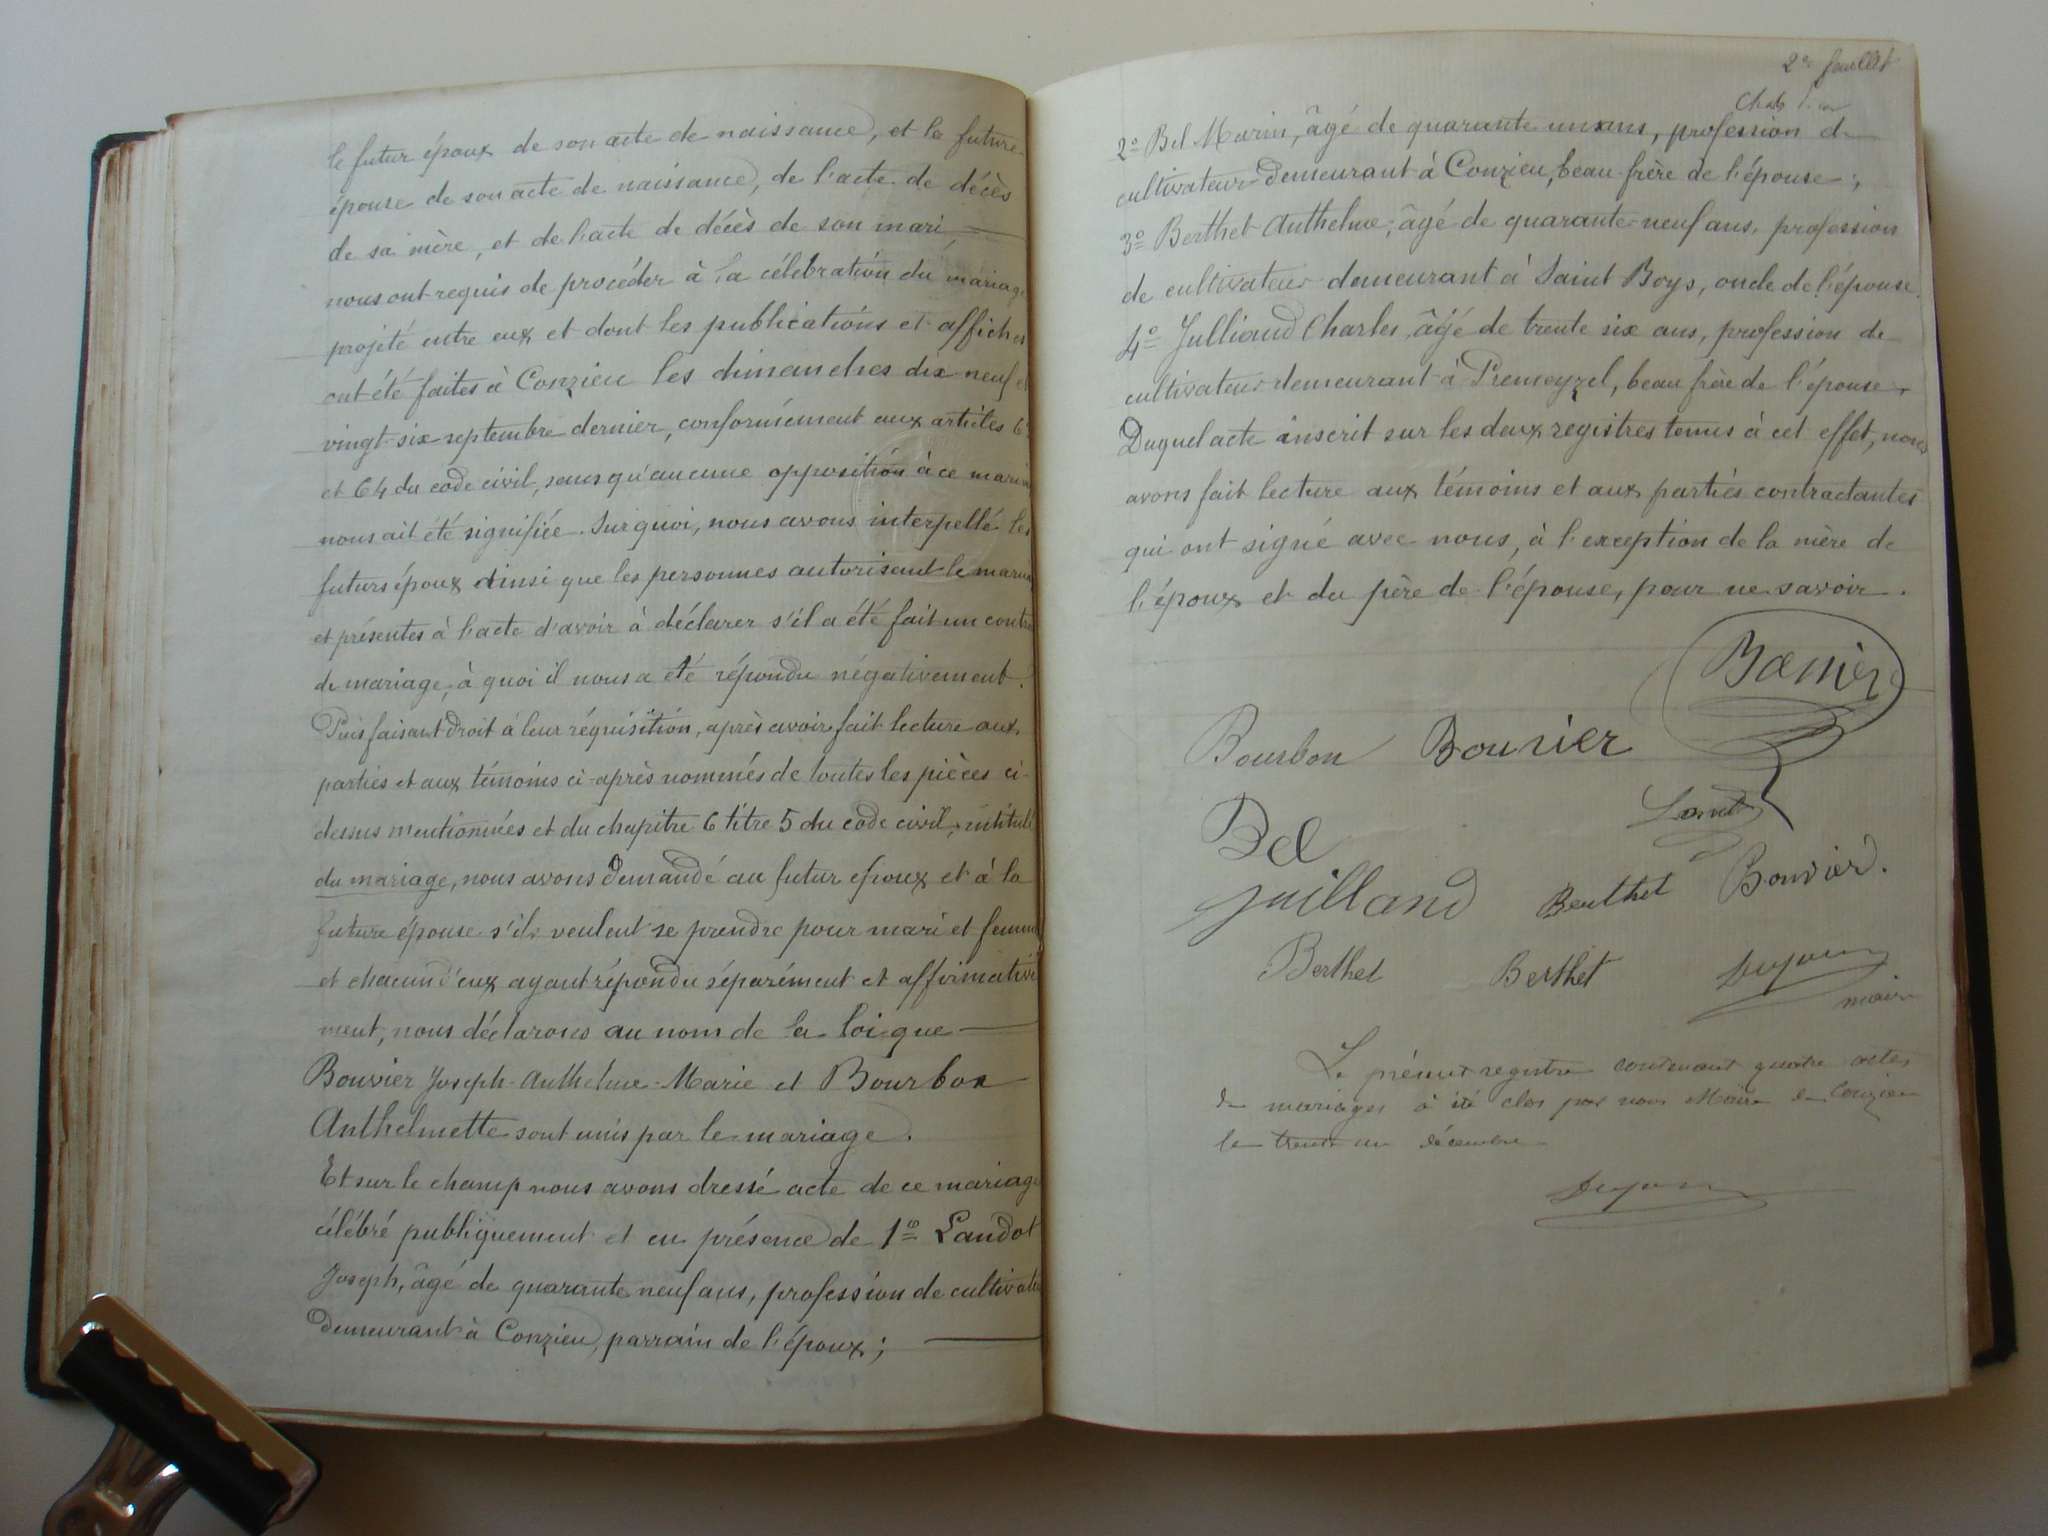 le futur époux de son acte de naissance, et la future
épouse de son acte de naissance, de l'acte de décès
de sa mère, et de l'acte de décès de son mari
nous ont requis de procéder à la célébration du mariage
projeté entre eux et dont les publications et affiches
ont été faites à Conzieu les dimanches dix neuf et
vingt-six septembre dernier, conformément aux articles 6
et 64 du code civil, sans qu'aucune opposition à ce maria
nous ait été signifiée. Sur quoi, nous avons interpellé les
futurs époux ainsi que les personnes autorisant le maria
et présentes à l'acte d'avoir à déclarer s'il a été fait un contra
de mariage, à quoi il nous a été répondu négativement.
Puis faisant droit à leur réquisition, après avoir fait lecture aux
parties et aux témoins ci-après nommés de toutes les pièces ci-
dessus mentionnées et du chapitre 6 titre 5 du code civil, intitulé
du mariage, nous avons demandé au futur époux et à la
future épouse s'ils veulent se prendre pour mari et femme
et chacun d'eux ayant répondu séparément et affirmative
ment, nous déclarons au nom de la loi que
Bouvier Joseph-Anthelme-Marie et Bourbon
Anthelmette sont unis par le mariage.
Et sur le champ nous avons dressé acte de ce mariage
célébré publiquement et en présence de 1º Landot
Joseph, âgé de quarante neuf ans, profession de cultivate
demeurant à Conzieu, parrain de l'époux;
2e feuillet
2º Bel Marin, âgé de quarante un ans, profession de
cultivateur demeurant à Conzieu, beau-frère de l'épouse;
3º Berthet Anthelme, âgé de quarante-neuf ans, profession
de cultivateur demeurant à Saint Boys, oncle de l'épouse.
4º Julliand Charles, âgé de trente six ans, profession de
cultivateur demeurant à Premeyzel, beau frère de l'épouse.
Duquel acte inscrit sur les deux registres tenus à cet effet, nous
avons fait lecture aux témoins et aux parties contractantes
qui ont signé avec nous, à l'exception de la mère de
l'époux et du père de l'épouse, pour ne savoir.
Bourbon Bouvier
Bel
Juilland Berthet Bouvier.
Berthet Berthet
maire
Le présent registre contenant quatre actes
de mariages à été clos par nous Maire de Conzieu
le trente un décembre